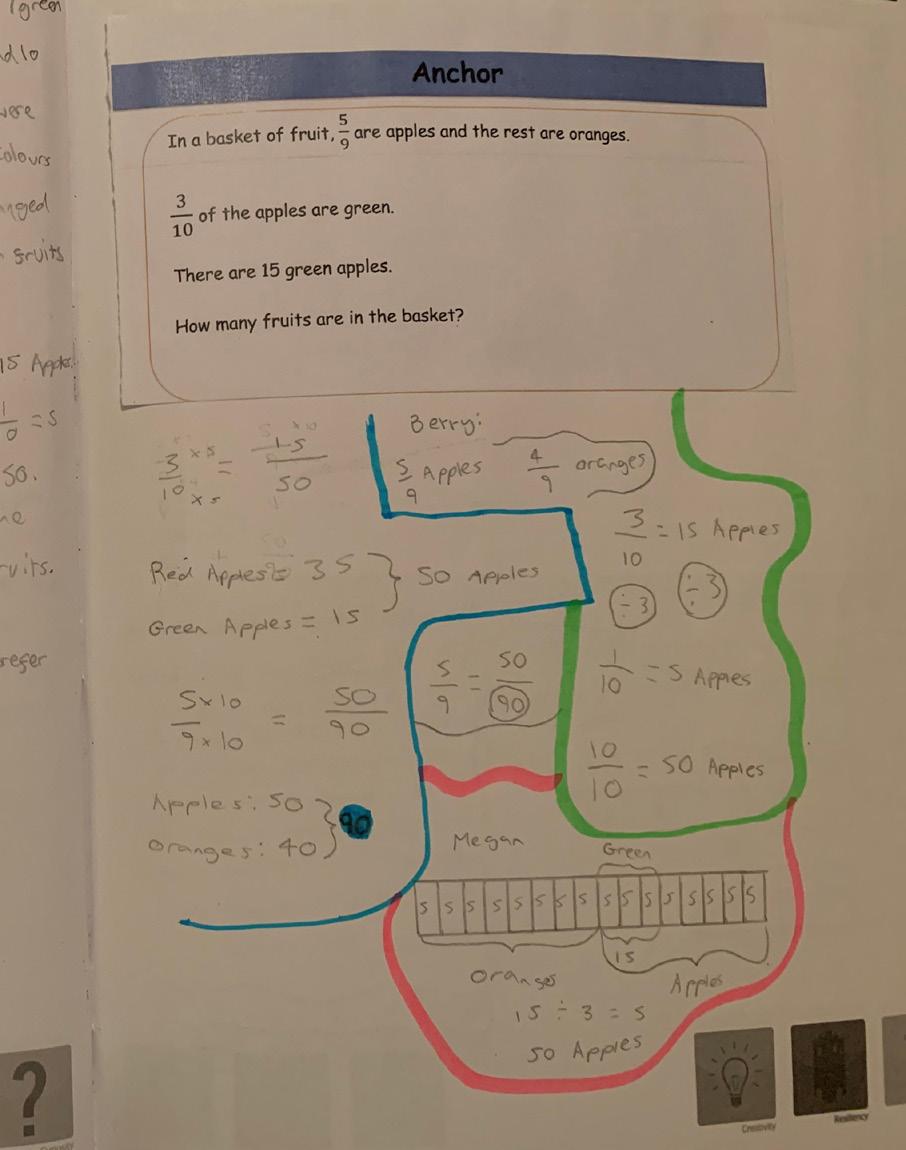 (green
were
colours
nged
fruits
15 Apples
1/0 = 5
50.
ruits.
refer
Anchor
In a basket of fruit, 5/9 are apples and the rest are oranges.
3/10 of the apples are green.
There are 15 green apples.
How many fruits are in the basket?
3/10 × 5 / × 5 = 15/50
Red Apples = 35 } 50 Apples
Green Apples = 15
5×10/9×10 = 50/90
Apples: 50 } 90
Oranges: 40
Berry:
5/9 Apples 4/9 oranges
3/10 = 15 Apples
÷3 ÷3
1/10 = 5 Apples
10/10 = 50 Apples
5/9 = 50/90
Megan
Green
5 5 5 5 5 5 5 5 5 5 5 5 5 5 5
15
Oranges Apples
15 ÷ 3 = 5
50 Apples
?
Creativity
Resiliency